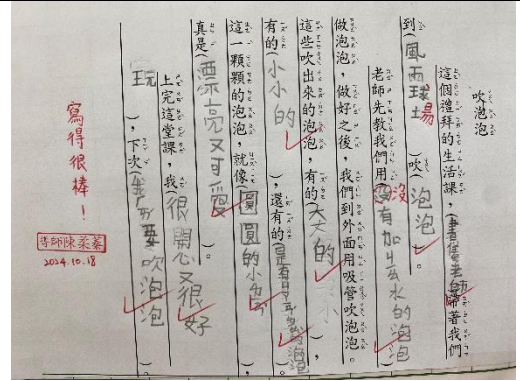 吹泡泡
這個禮拜的生活課，（老師帶著我們
到（風雨球場）吹（泡泡）。
老師先教我們用（沒有加生水的泡泡
做泡泡，做好之後，我們到外面用吸管吹泡泡。
這些吹出來的泡泡，有的（大大的），
有的（小小的），還有的（是有泡泡）。
這一顆顆的泡泡，就像（圓圓的小）
真是（漂亮又可愛）。
上完這堂課，我（很開心又很好
玩），下次（要吹泡泡）。
寫得很棒！
2024.10.18